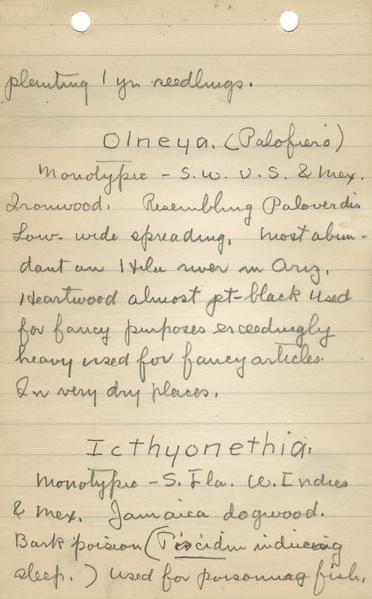 planting 1 yr. seedlings.
Olneya. (Palofiero)
Monotypic - S.W. U.S. & Mex.
Ironwood. Resembling Paloverdis
Low- wide spreading. Most abun-
dant on Hila river in Ariz.
Heartwood almost jet-black used
for fancy purposes exceedingly
heavy used for fancy articles.
In very dry places.
Icthyonethia.
Monotypic - S. Fla. W. Indies
& Mex. Jamaica dogwood.
Bark poision (Piscidin inducing
sleep.) used for poisoning fish.